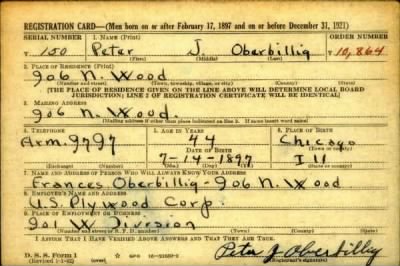 REGISTRATION CARD—(Men born on or after February 17, 1897 and on or before December 31, 1921)
SERIAL NUMBER 1. NAME (Print) ORDER NUMBER
T 150 Peter J. Oberbillig T10,864
(First) (Middle) (Last)
2. PLACE OF RESIDENCE (Print)
906 N. Wood
(Number and street) (Town, township, village, or city) (County) (State)
[THE PLACE OF RESIDENCE GIVEN ON THE LINE ABOVE WILL DETERMINE LOCAL BOARD
JURISDICTION; LINE 2 OF REGISTRATION CERTIFICATE WILL BE IDENTICAL]
3. MAILING ADDRESS
906 N. Wood.
(Mailing address if other than place indicated on line 2. If same insert word same)
4. TELEPHONE 5. AGE IN YEARS 6. PLACE OF BIRTH
44 Chicago
Arm. 9797 DATE OF BIRTH (Town or county)
7-14-1897 Ill
(Exchange) (Number) (Mo.) (Day) (Yr.) (State or country)
7. NAME AND ADDRESS OF PERSON WHO WILL ALWAYS KNOW YOUR ADDRESS
Frances Oberbillig-906 N. Wood
8. EMPLOYER'S NAME AND ADDRESS
U.S. Plywood Corp.
9. PLACE OF EMPLOYMENT OR BUSINESS
901 W Division
(Number and street or R. F. D. number) (Town) (County) (State)
I AFFIRM THAT I HAVE VERIFIED ABOVE ANSWERS AND THAT THEY ARE TRUE.
D. S. S. Form 1
(Revised 1-1-42) (over) GPO Peter J Oberbillig
(Registrant's signature)